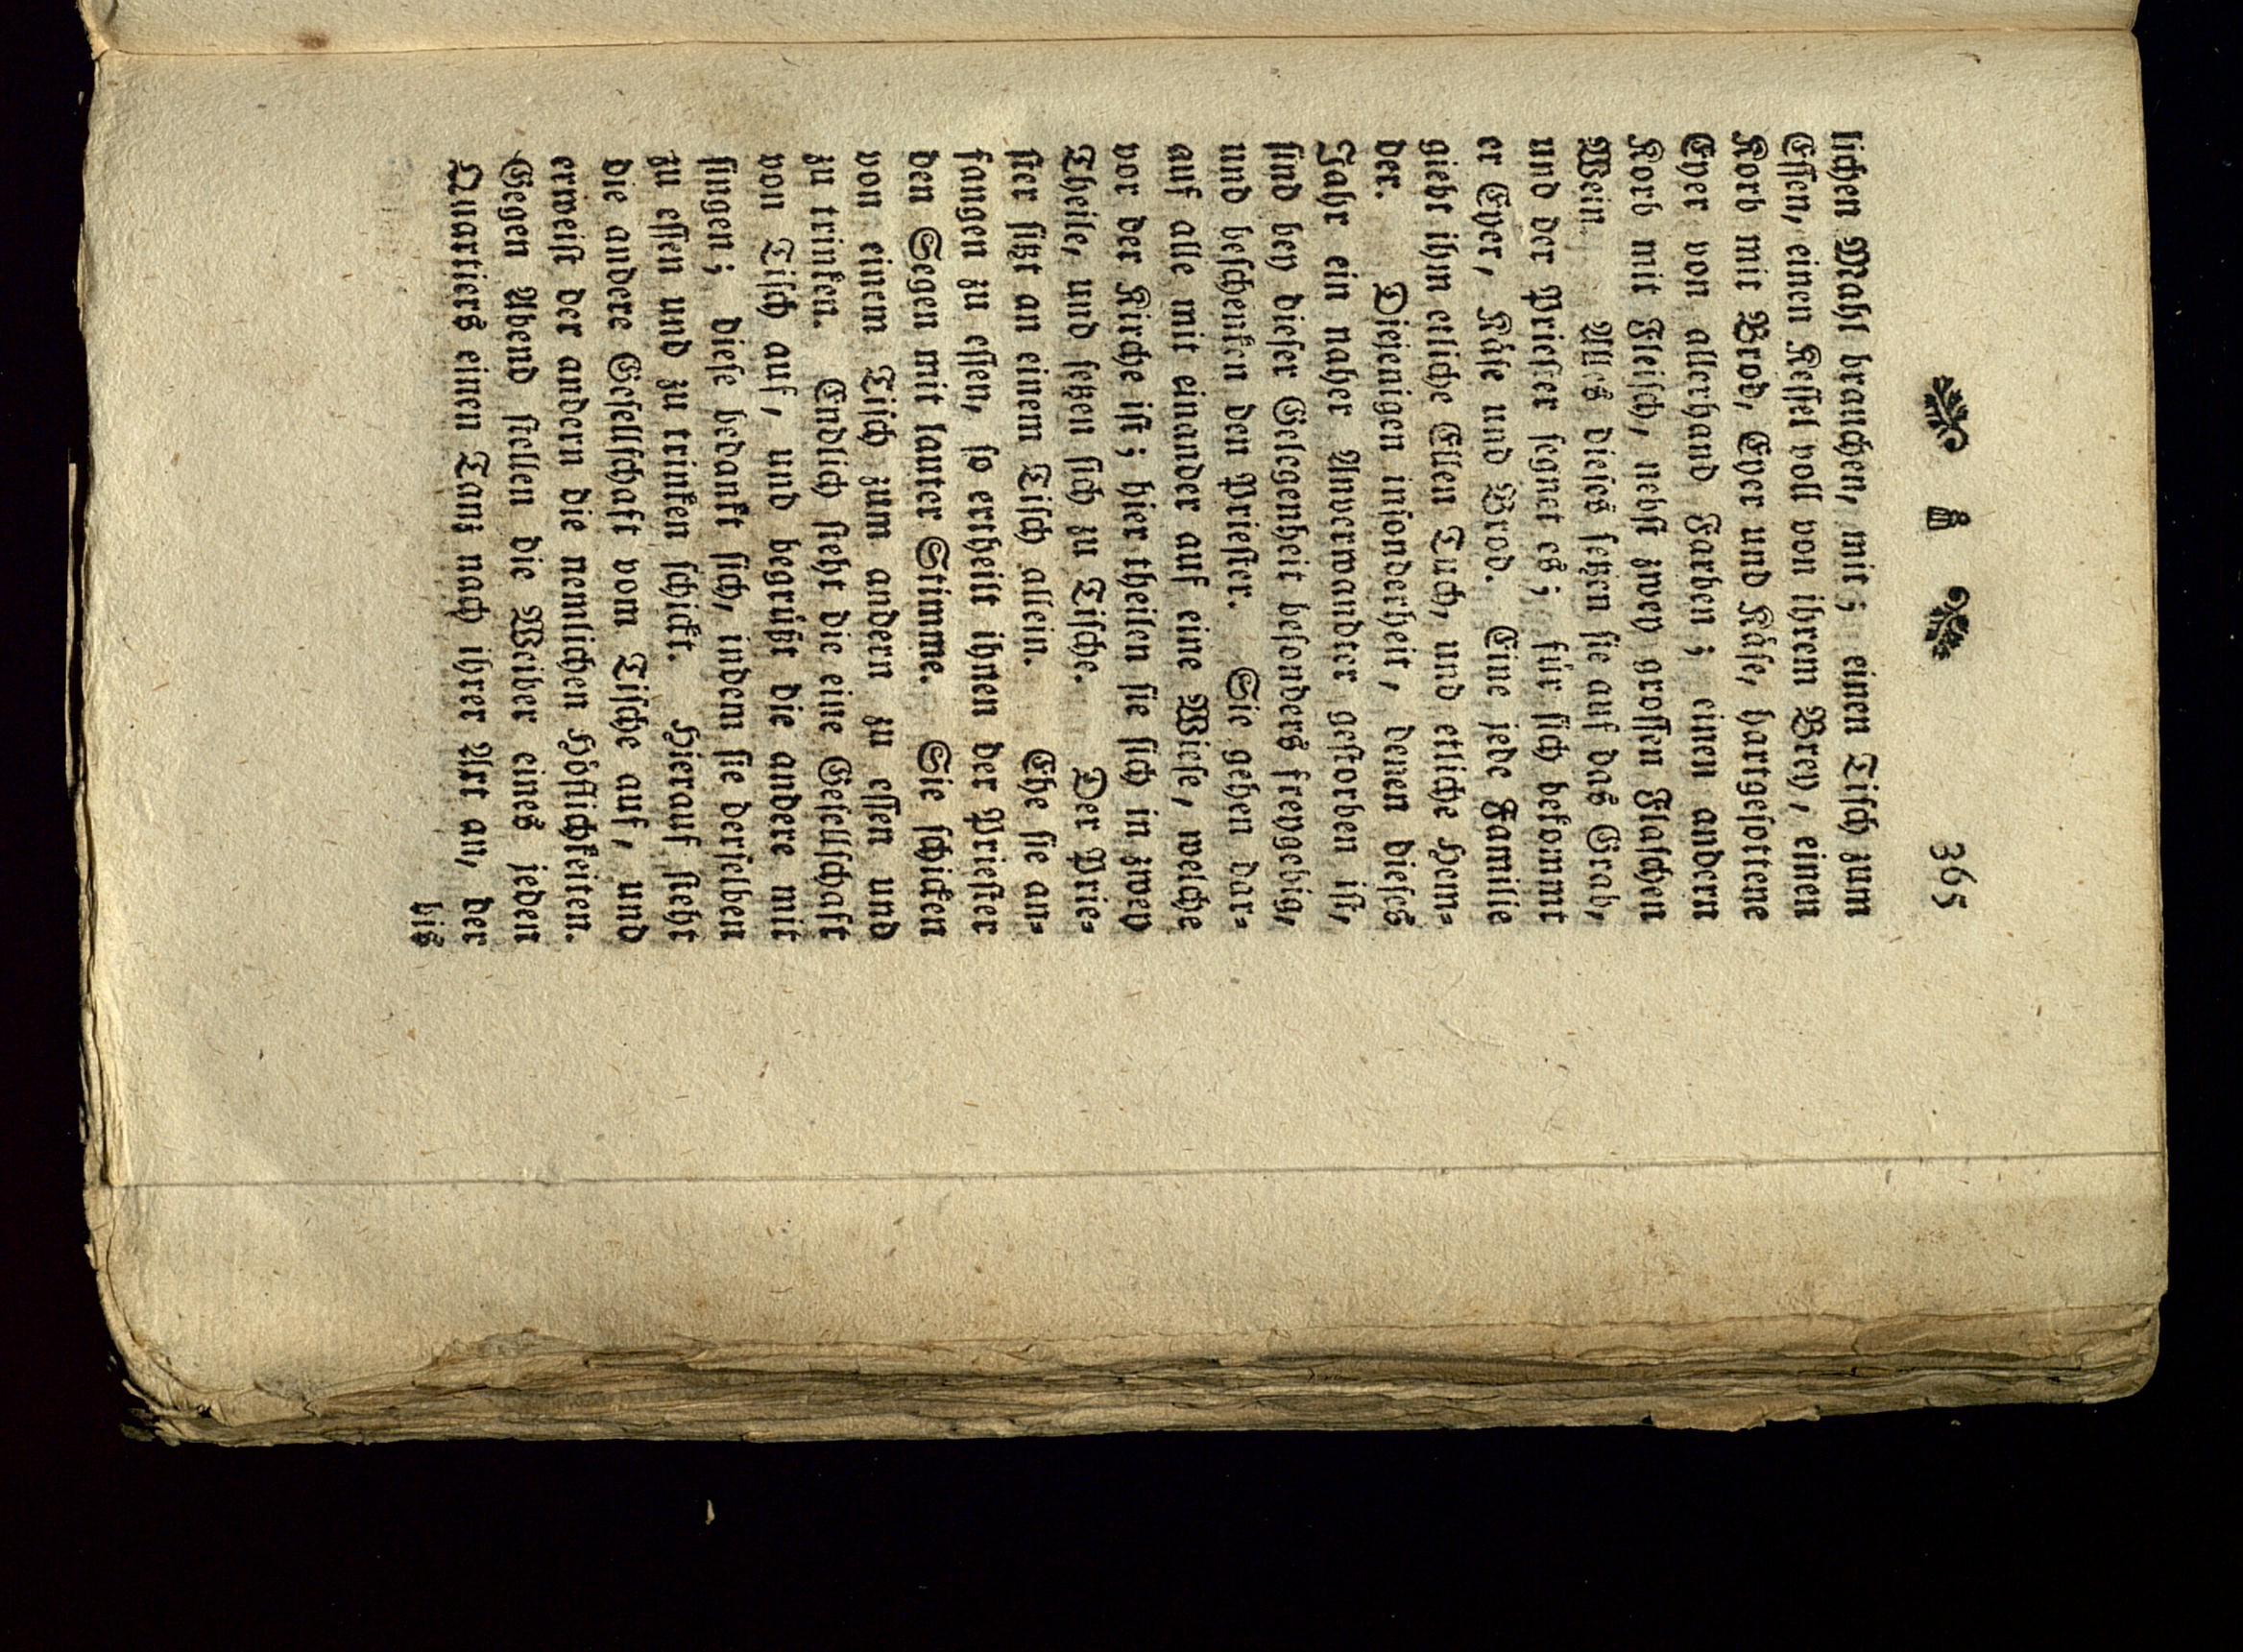 365
lichen Mahl brauchen, mit; einen Tisch zum
Essen, einen Kessel voll von ihrem Brey, einen
Korb mit Brod, Eyer und Käse, hartgesottene
Eyer von allerhand Farben; einen andern
Korb mit Fleisch, nebst zwey grossen Flaschen
Wein. Alles dieses setzen sie auf das Grab,
und der Priester segnet es; für sich bekommt
er Eyer, Käse und Brod. Eine jede Familie
giebt ihm etliche Ellen Tuch, und etliche Hem-
der. Diejenigen insonderheit, denen dieses
Jahr ein naher Anverwandter gestorben ist,
sind bey dieser Gelegenheit besonders freygebig,
und beschenken den Priester. Sie gehen dar-
auf alle mit einander auf eine Wiese, welche
vor der Kirche ist; hier theilen sie sich in zwey
Theile, und setzen sich zu Tische. Der Prie-
ster sitzt an einem Tisch allein. Ehe sie an-
fangen zu essen, so ertheilt ihnen der Priester
den Segen mit lauter Stimme. Sie schicken
von einem Tisch zum andern zu essen und
zu trinken. Endlich steht die eine Gesellschaft
von Tisch auf, und begrüßt die andere mit
singen; diese bedankt sich, indem sie derselben
zu essen und zu trinken schickt. Hierauf steht
die andere Gesellschaft vom Tische auf, und
erweist der andern die nemlichen Höflichkeiten.
Gegen Abend stellen die Weiber eines jeden
Quartiers einen Tanz nach ihrer Art an, der
bis